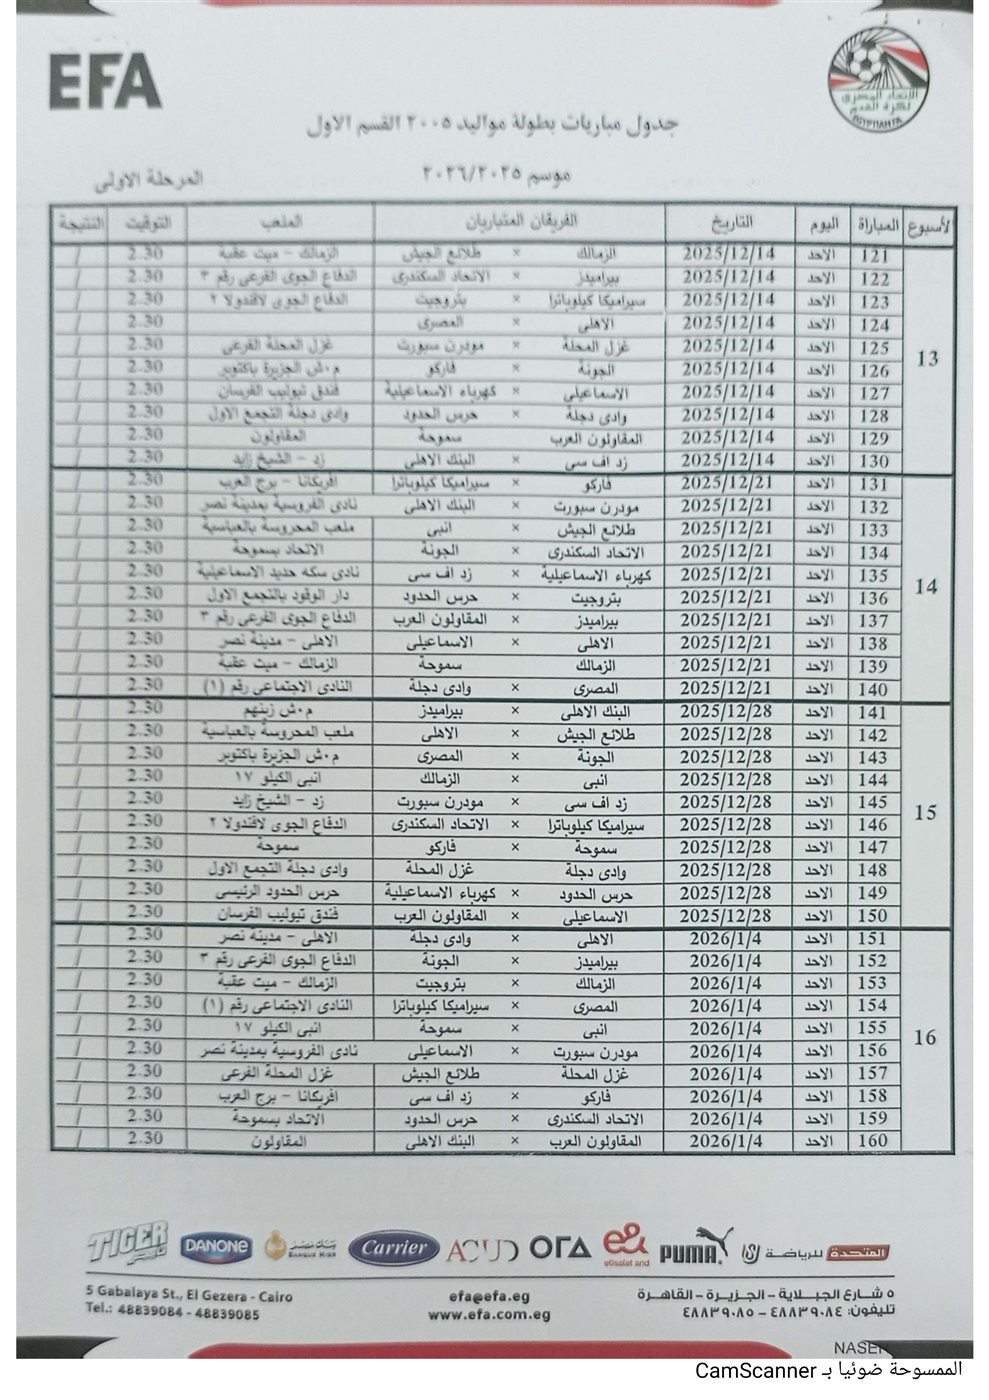 EFA
الاتحاد المصرى
لكرة القدم
EGYPTIAN FA
جدول مباريات بطولة مواليد ٢٠٠٥ القسم الاول
موسم ٢٠٢٦/٢٠٢٥
المرحلة الاولى
الاسبوع المباراة اليوم التاريخ الفريقان المتباريان الملعب التوقيت النتيجة
13
121 الاحد 2025/12/14 الزمالك × طلائع الجيش الزمالك - ميت عقبة 2.30 /
122 الاحد 2025/12/14 بيراميدز × الاتحاد السكندرى الدفاع الجوى الفرعى رقم ٣ 2.30 /
123 الاحد 2025/12/14 سيراميكا كيلوباترا × بتروجيت الدفاع الجوى لافندولا ٢ 2.30 /
124 الاحد 2025/12/14 الاهلى × المصرى 2.30 /
125 الاحد 2025/12/14 غزل المحلة × مودرن سبورت غزل المحلة الفرعى 2.30 /
126 الاحد 2025/12/14 الجونة × فاركو م٠ش الجزيرة باكتوبر 2.30 /
127 الاحد 2025/12/14 الاسماعيلى × كهرباء الاسماعيلية فندق تيوليب الفرسان 2.30 /
128 الاحد 2025/12/14 وادى دجلة × حرس الحدود وادى دجلة التجمع الاول 2.30 /
129 الاحد 2025/12/14 المقاولون العرب × سموحة المقاولون 2.30 /
130 الاحد 2025/12/14 زد اف سى × البنك الاهلى زد - الشيخ زايد 2.30 /
14
131 الاحد 2025/12/21 فاركو × سيراميكا كيلوباترا افريكانا - برج العرب 2.30 /
132 الاحد 2025/12/21 مودرن سبورت × البنك الاهلى نادى الفروسية بمدينة نصر 2.30 /
133 الاحد 2025/12/21 طلائع الجيش × انبى ملعب المحروسة بالعباسية 2.30 /
134 الاحد 2025/12/21 الاتحاد السكندرى × الجونة الاتحاد بسموحة 2.30 /
135 الاحد 2025/12/21 كهرباء الاسماعيلية × زد اف سى نادى سكه حديد الاسماعيلية 2.30 /
136 الاحد 2025/12/21 بتروجيت × حرس الحدود دار الوقود بالتجمع الاول 2.30 /
137 الاحد 2025/12/21 بيراميدز × المقاولون العرب الدفاع الجوى الفرعى رقم ٣ 2.30 /
138 الاحد 2025/12/21 الاهلى × الاسماعيلى الاهلى - مدينة نصر 2.30 /
139 الاحد 2025/12/21 الزمالك سموحة الزمالك - ميت عقبة 2.30 /
140 الاحد 2025/12/21 المصرى × وادى دجلة النادى الاجتماعى رقم (١) 2.30 /
15
141 الاحد 2025/12/28 البنك الاهلى × بيراميدز م٠ش زينهم 2.30 /
142 الاحد 2025/12/28 طلائع الجيش × الاهلى ملعب المحروسة بالعباسية 2.30 /
143 الاحد 2025/12/28 الجونة × المصرى م٠ش الجزيرة باكتوبر 2.30 /
144 الاحد 2025/12/28 انبى × الزمالك انبى الكيلو ١٧ 2.30 /
145 الاحد 2025/12/28 زد اف سى × مودرن سبورت زد - الشيخ زايد 2.30 /
146 الاحد 2025/12/28 سيراميكا كيلوباترا × الاتحاد السكندرى الدفاع الجوى لافندولا ٢ 2.30 /
147 الاحد 2025/12/28 سموحة × فاركو سموحة 2.30 /
148 الاحد 2025/12/28 وادى دجلة × غزل المحلة وادى دجلة التجمع الاول 2.30 /
149 الاحد 2025/12/28 حرس الحدود × كهرباء الاسماعيلية حرس الحدود الرئيسى 2.30 /
150 الاحد 2025/12/28 الاسماعيلى × المقاولون العرب فندق تيوليب الفرسان 2.30 /
16
151 الاحد 2026/1/4 الاهلى × وادى دجلة الاهلى - مدينة نصر 2.30 /
152 الاحد 2026/1/4 بيراميدز × الجونة الدفاع الجوى الفرعى رقم ٣ 2.30 /
153 الاحد 2026/1/4 الزمالك × بتروجيت الزمالك - ميت عقبة 2.30 /
154 الاحد 2026/1/4 المصرى × سيراميكا كيلوباترا النادى الاجتماعى رقم (١) 2.30 /
155 الاحد 2026/1/4 انبى × سموحة انبى الكيلو ١٧ 2.30 /
156 الاحد 2026/1/4 مودرن سبورت × الاسماعيلى نادى الفروسية بمدينة نصر 2.30 /
157 الاحد 2026/1/4 غزل المحلة × طلائع الجيش غزل المحلة الفرعى 2.30 /
158 الاحد 2026/1/4 فاركو × زد اف سى افريكانا - برج العرب 2.30 /
159 الاحد 2026/1/4 الاتحاد السكندرى × حرس الحدود الاتحاد بسموحة 2.30 /
160 الاحد 2026/1/4 المقاولون العرب × البنك الاهلى المقاولون 2.30 /
TIGER DANONE بنك مصر BANQUE MISR Carrier ACUD ORA e& etisalat and PUMA المتحدة للرياضة
5 Gabalaya St., El Gezera - Cairo
Tel.: 48839084 - 48839085
efa@efa.eg
www.efa.com.eg
٥ شارع الجبلاية - الجزيرة - القاهرة
تليفون: ٤٨٨٣٩٠٨٤ - ٤٨٨٣٩٠٨٥
الممسوحة ضوئيا بـ CamScanner